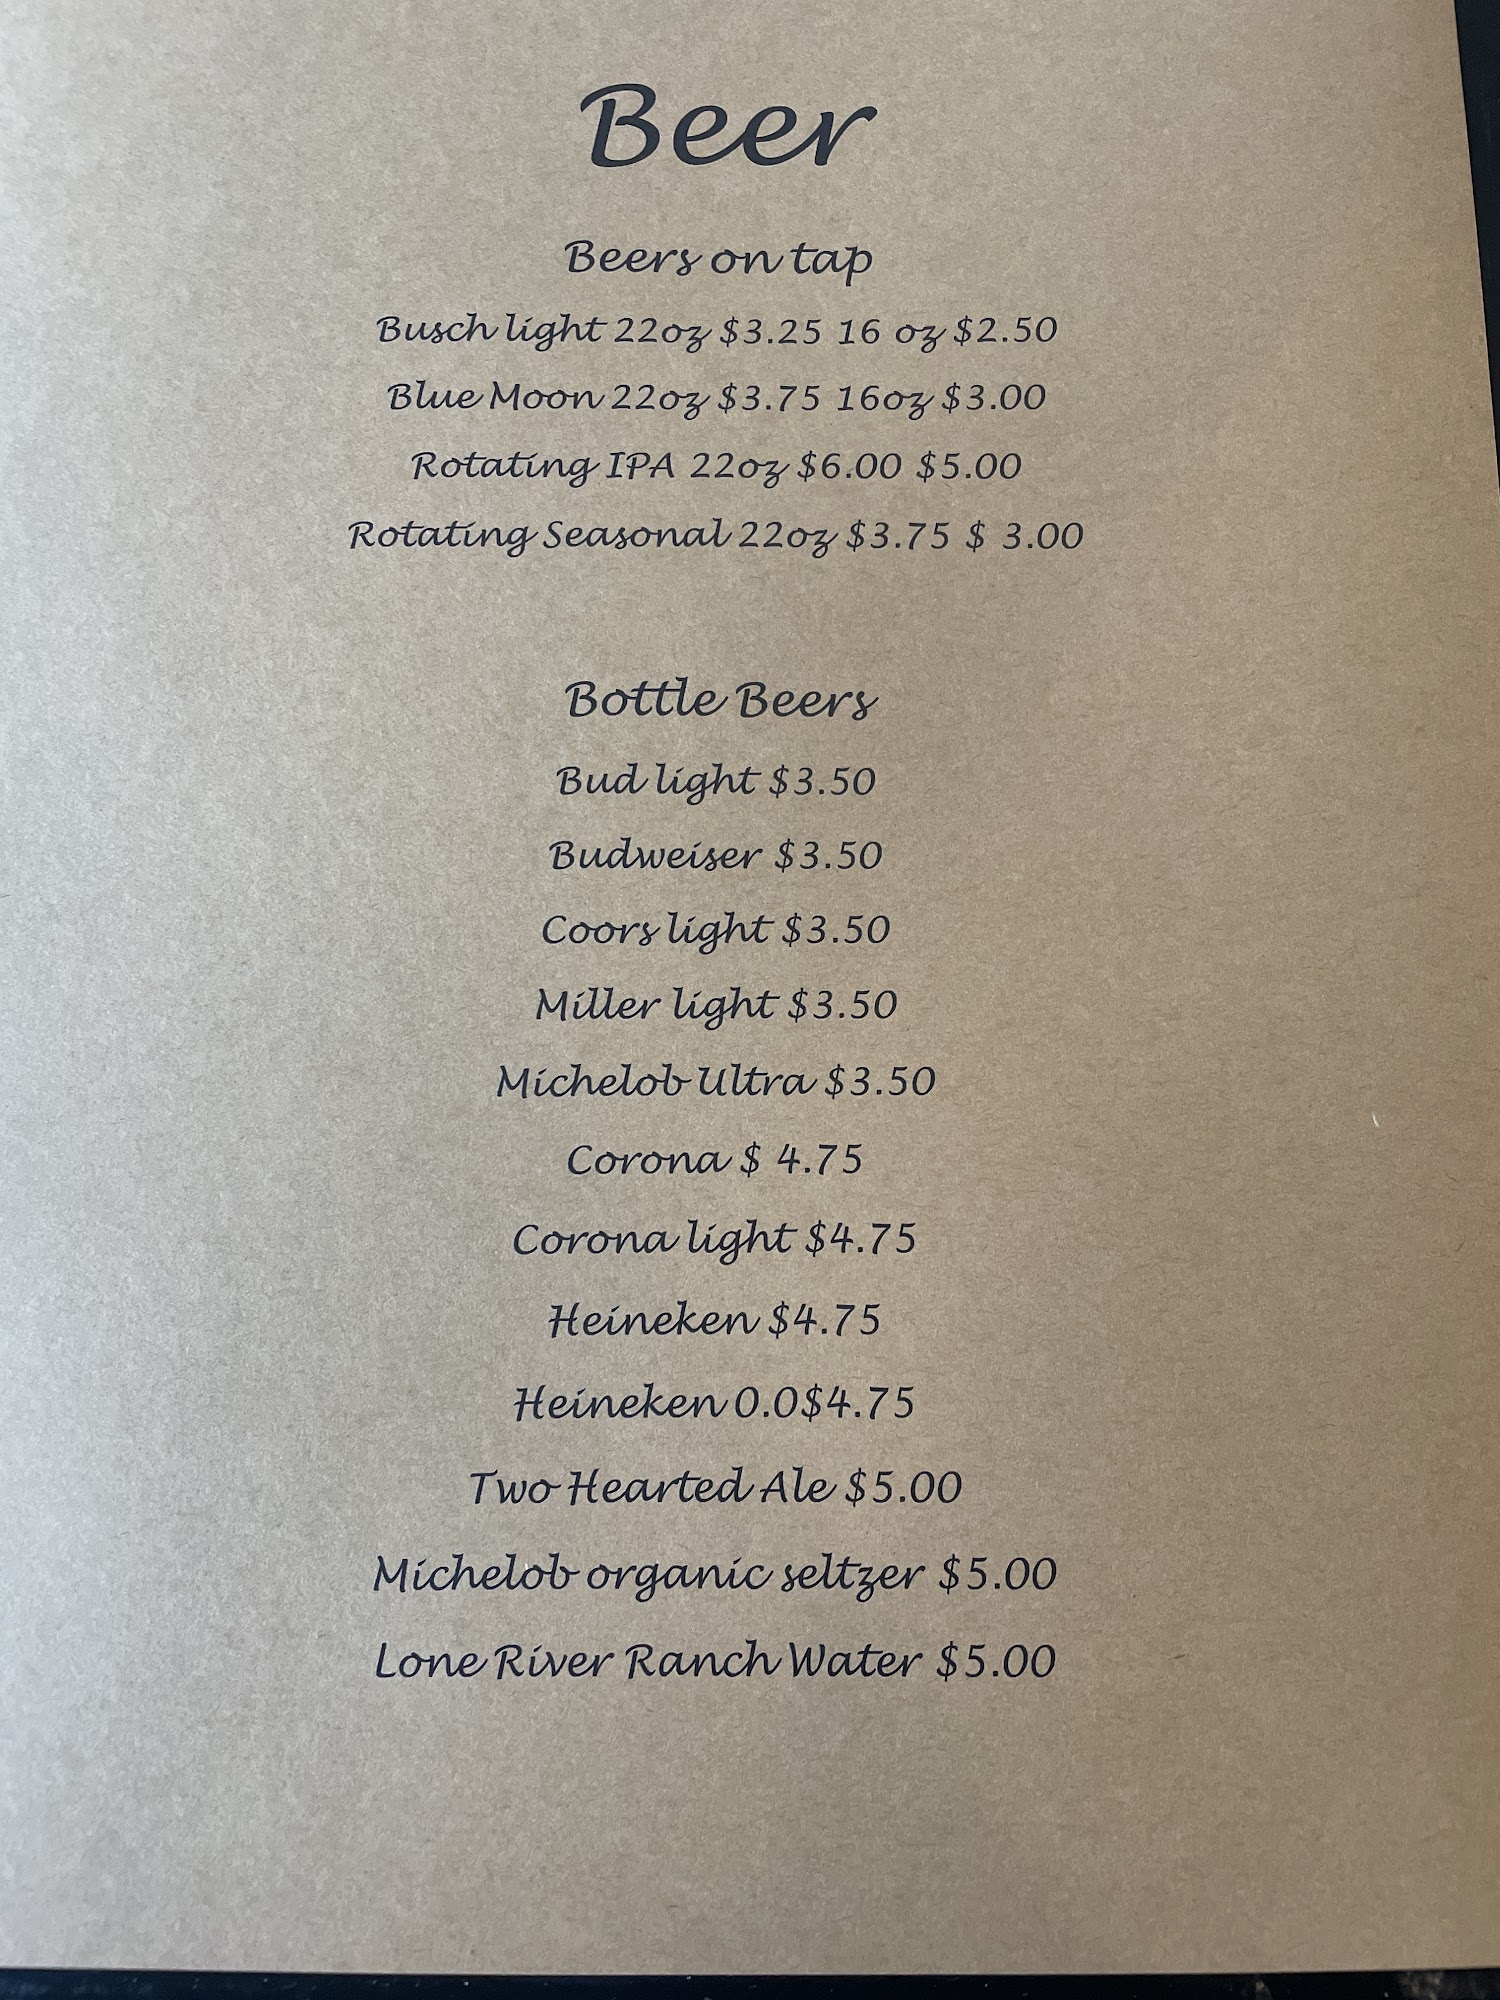 Beer
Beers on tap
Busch light 22oz $3.25 16 oz $2.50
Blue Moon 22oz $3.75 16oz $3.00
Rotating IPA 22oz $6.00 $5.00
Rotating Seasonal 22oz $3.75 $ 3.00
Bottle Beers
Bud light $3.50
Budweiser $3.50
Coors light $3.50
Miller light $3.50
Michelob Ultra $3.50
Corona $ 4.75
Corona light $4.75
Heineken $4.75
Heineken 0.0$4.75
Two Hearted Ale $5.00
Michelob organic seltzer $5.00
Lone River Ranch Water $5.00